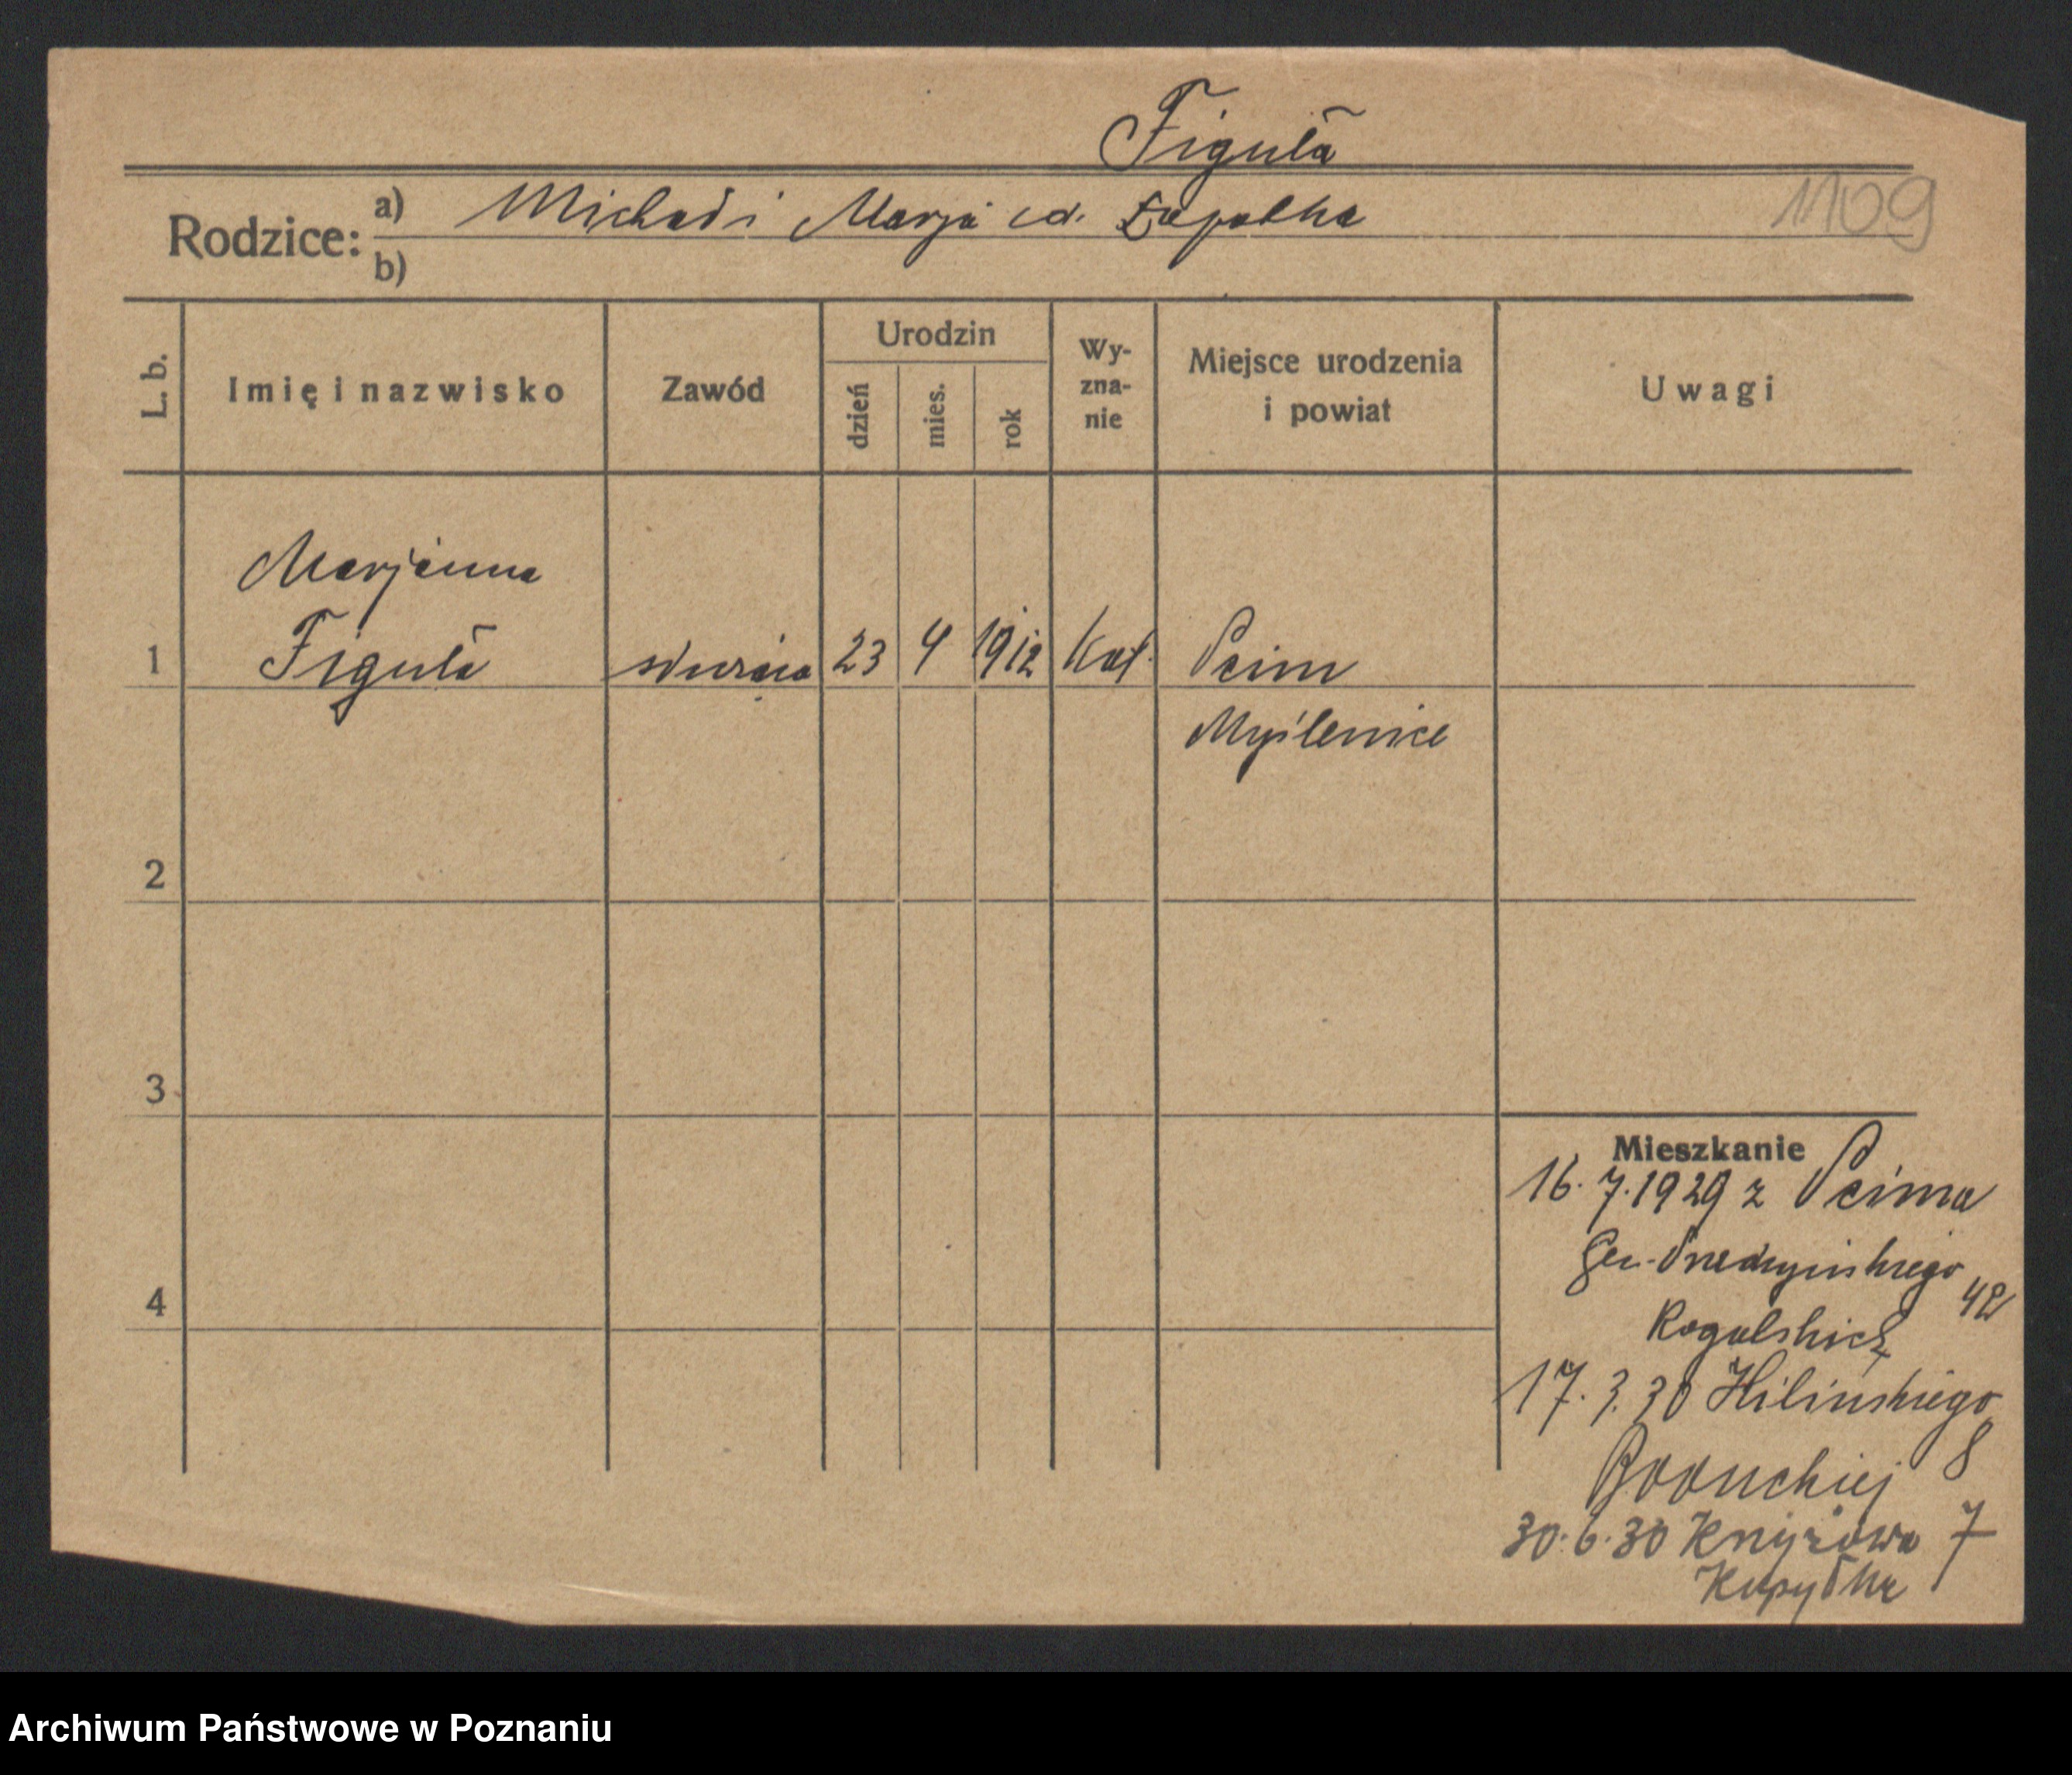 Figuła
1109
Rodzice: a) Michał i Marja cd. Łapatka
b)
L. b. Imię i nazwisko Zawód Urodzin dzień mies. rok Wy-zna-nie Miejsce urodzenia i powiat Uwagi
Marjanna
1 Figuła służąca 23 4 1912 Kat. Pcim
Myślenice
2
3
Mieszkanie
16.7.1929 z Pcima
Gen. Prądzyńskiego
4 42
Rogalskich
17.3.30 Kilińskiego
8
30.6.30 Knyżowa 7
Archiwum Państwowe w Poznaniu